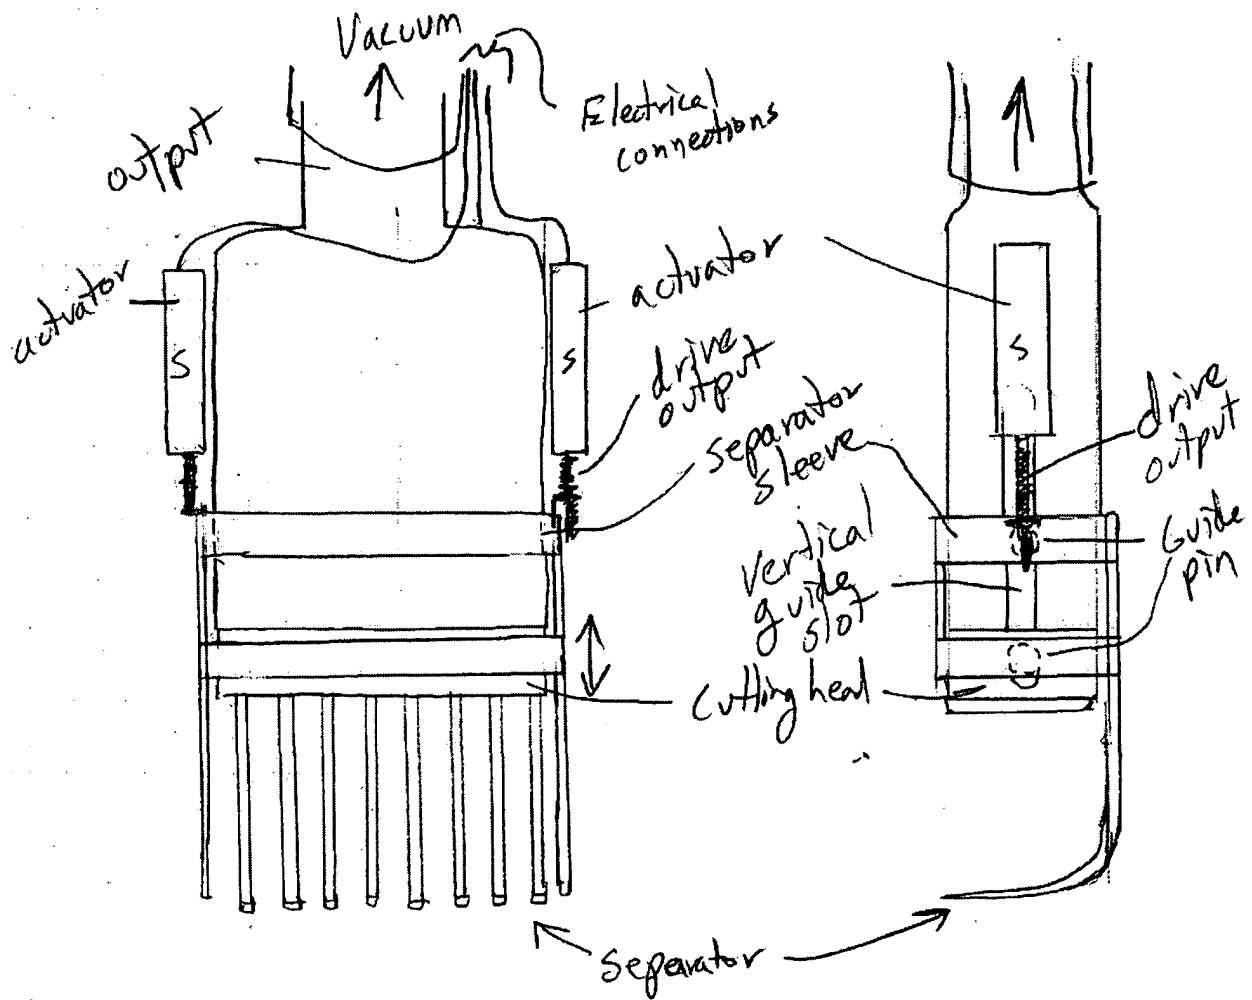 Vacuum
Electrical
connections
output
actuator
S
actuator
S
S
drive
output
separator
sleeve
drive
output
Guide
pin
vertical
guide
slot
cutting head
separator